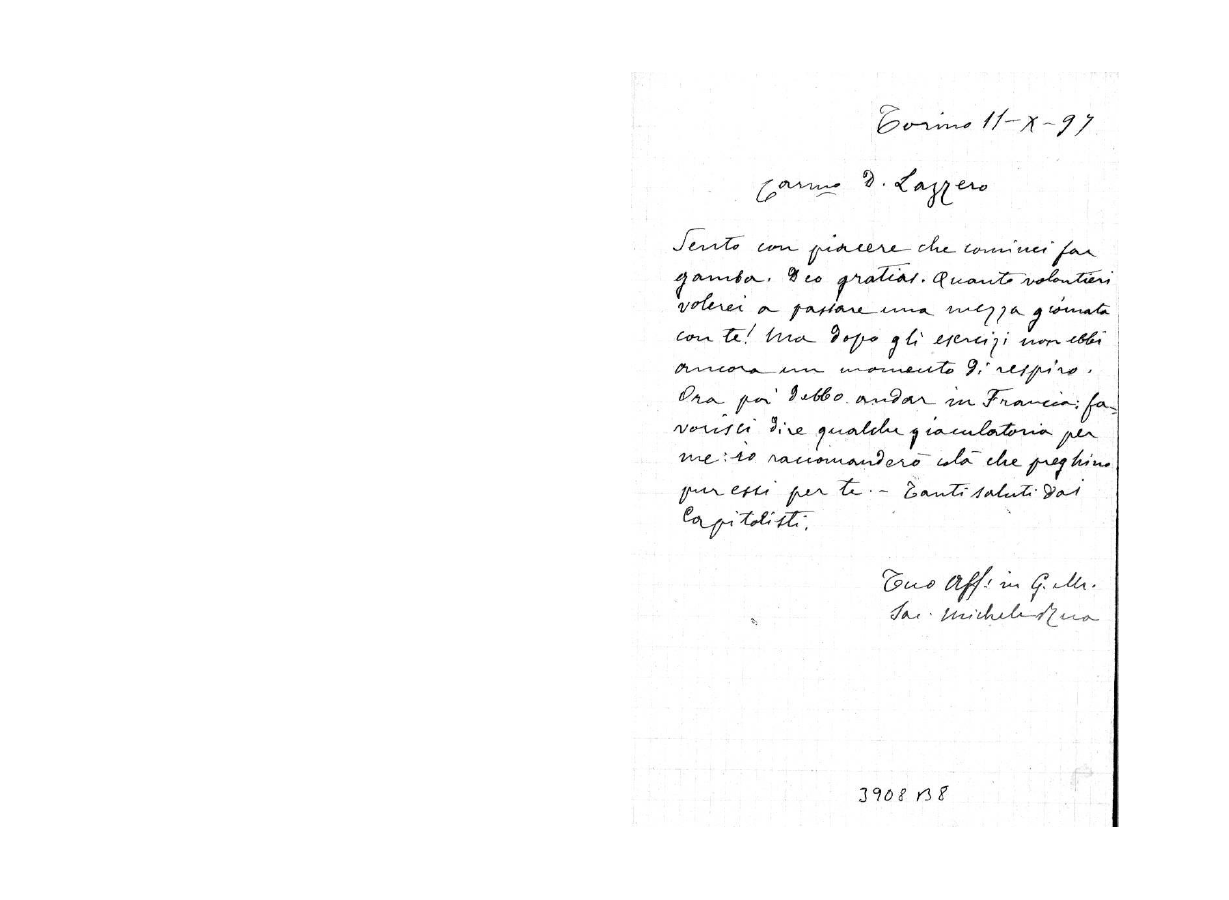 Torino 11-X-97
Carmo D. Lazzero
Sento con piacere che cominci far
gamba. Deo gratias. Quanto volontieri
volerei a passare una mezza giornata
con te! Ma dopo gli esercizi non ebbi
ancora un momento di respiro.
Ora poi debbo andar in Francia: fa-
vorisci dire qualche giaculatoria per
me: io raccomanderò colà che preghino
pur essi per te. - Tanti saluti dai
Capitolisti.
Tuo Aff. in G. e M.
Sac. Michele Rua
3908 B8